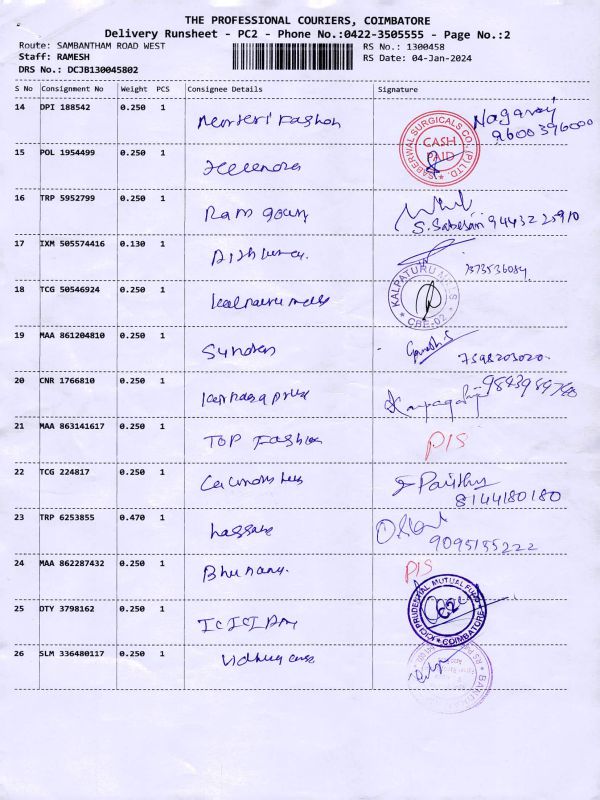 THE PROFESSIONAL COURIERS, COIMBATORE
Delivery Runsheet - PC2 - Phone No.:0422-3505555 - Page No.:2
Route: SAMBANTHAM ROAD WEST
RS No.: 1300458
Staff: RAMESH
RS Date: 04-Jan-2024
DRS No.: DCJB130045802
S No Consignment No Weight PCS Consignee Details Signature
14 DPI 188542 0.250 1 Fashon Nagaraj
9600396000
SABERWAL SURGICALS CO. (P) LTD. CASH PAID
15 POL 1954499 0.250 1
16 TRP 5952799 0.250 1 Ram
S. Sabesan 9443225910
17 IXM 505574416 0.130 1
7373536084
18 TCG 50546924 0.250 1 Kalpaturu mells KALPATURU MELLS CBE-02
19 MAA 861204810 0.250 1 Sundar Ganesh.S
7598203020
20 CNR 1766810 0.250 1 9843989780
21 MAA 863141617 0.250 1 TOP Fashion P/S
22 TCG 224817 0.250 1
8144180180
23 TRP 6253855 0.470 1
9095155222
24 MAA 862287432 0.250 1 Bhu P/S
25 DTY 3798162 0.250 1 ICICI Pru ICICI PRUDENTIAL MUTUAL FUND COIMBATORE
26 SLM 336480117 0.250 1